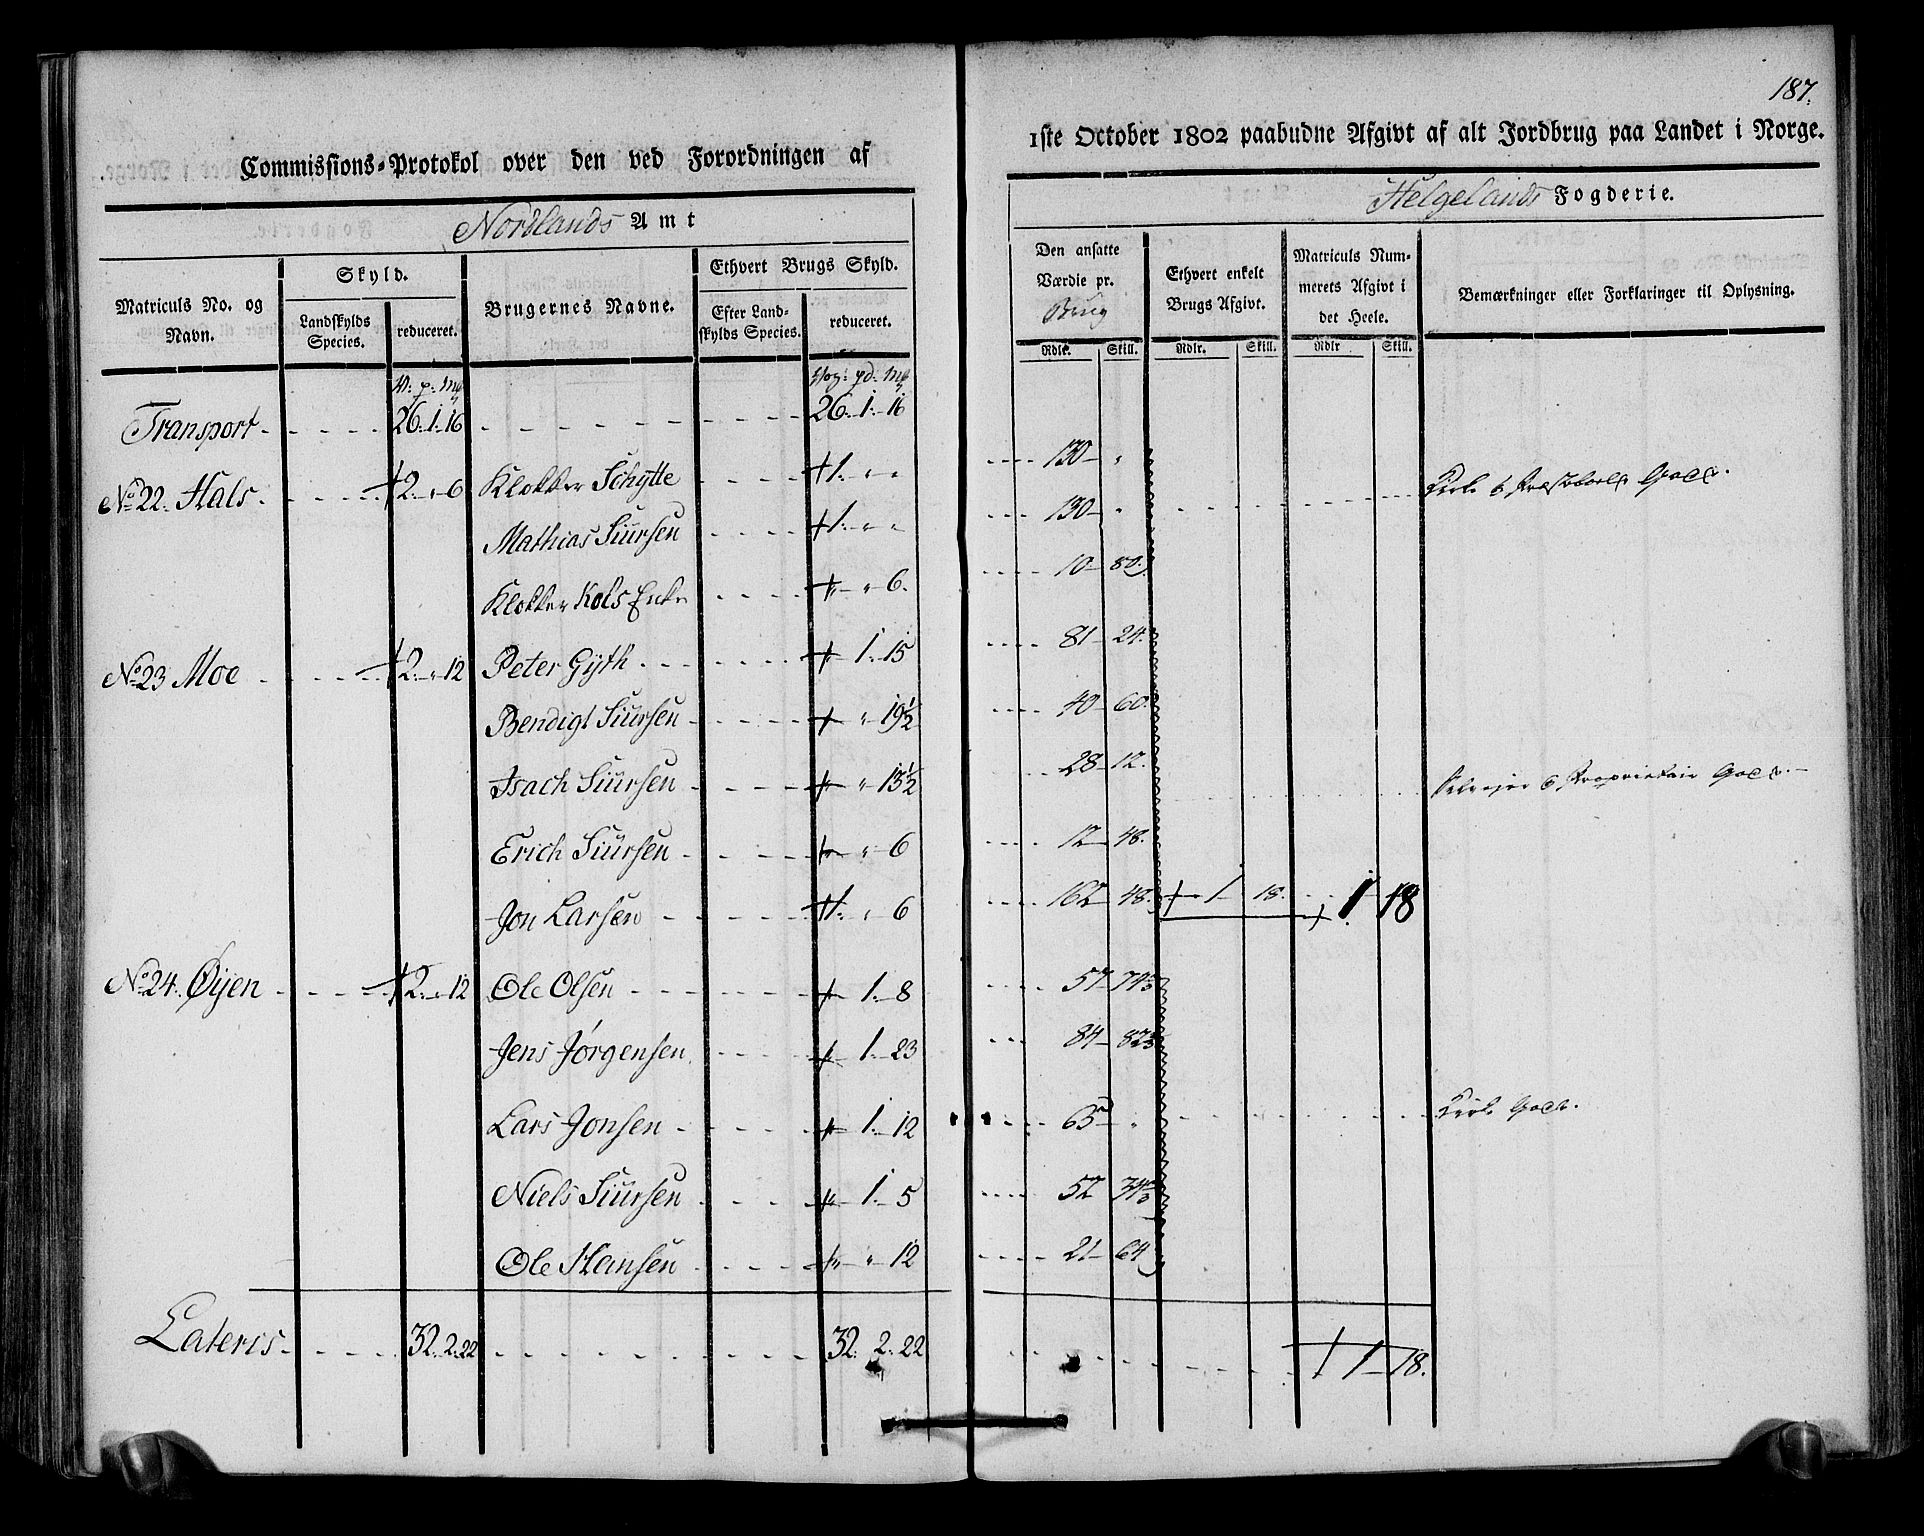 187.
Commissions-Protokol over den ved Forordningen af
1ste October 1802 paabudne Afgivt af alt Jordbrug paa Landet i Norge.
Nordlands Amt
Helgelands Fogderie.
Matriculs No. og Navn.
Skyld.
Landskylds Species.
reduceret.
Brugernes Navne.
Ethvert Brugs Skyld.
Efter Landskylds Species.
reduceret.
Den ansatte Værdie pr. Brug
Ethvert enkelt Brugs Afgivt.
Matriculs Nummerets Afgivt i det Heele.
Bemærkninger eller Forklaringer til Oplysning.
Rdlr. Skill. Rdlr. Skill. Rdlr Skill.
Transport 26. 1. 16 26. 1. 16
No 22. Hals 2. " 6 Klokker Schytte 1. " " 130 "
Mathias Siursen 1. " " 130 "
Klokker Kols Enke " " 6. 10 80.
No 23 Moe 2. " 12 Peter Gyth 1. 15 81 24.
Bendigt Siursen " 19½ 40 60.
Isach Siursen " 13½ 28 12.
Erich Siursen " 6 12 48.
Jon Larsen 1. " 6 162 48. 1 18. 1 18
No 24. Øyen 2. " 12 Ole Olsen 1. 8 57 74⅔
Jens Jørgensen 1. 23 84 82⅔
Lars Jonsen 1. 12 65 " Kirke Gods.
Niels Siursen 1. 5 52 34⅔
Ole Hansen " 12 21 64
Lateris 32. 2. 22 32. 2. 22 1 18.